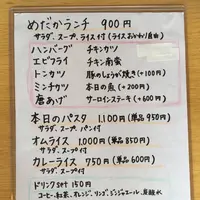 めだかランチ 900円
サラダ、スープ、ライス付(ライスおかわり自由)
ハンバーグ チキンカツ
エビフライ チキン南蛮
トンカツ 豚のしょうが焼き(+100円)
ミンチカツ 本日の魚(+200円)
唐あげ サーロインステーキ(+600円)
本日のパスタ 1,100円(単品950円)
サラダ スープ パン付
オムライス 1,000円(単品850円)
サラダ、スープ付
カレーライス 750円(600円)
サラダ付
ドリンクset 150円
コーヒー、紅茶、オレンジ、リンゴ、ジンジャエール、炭酸水